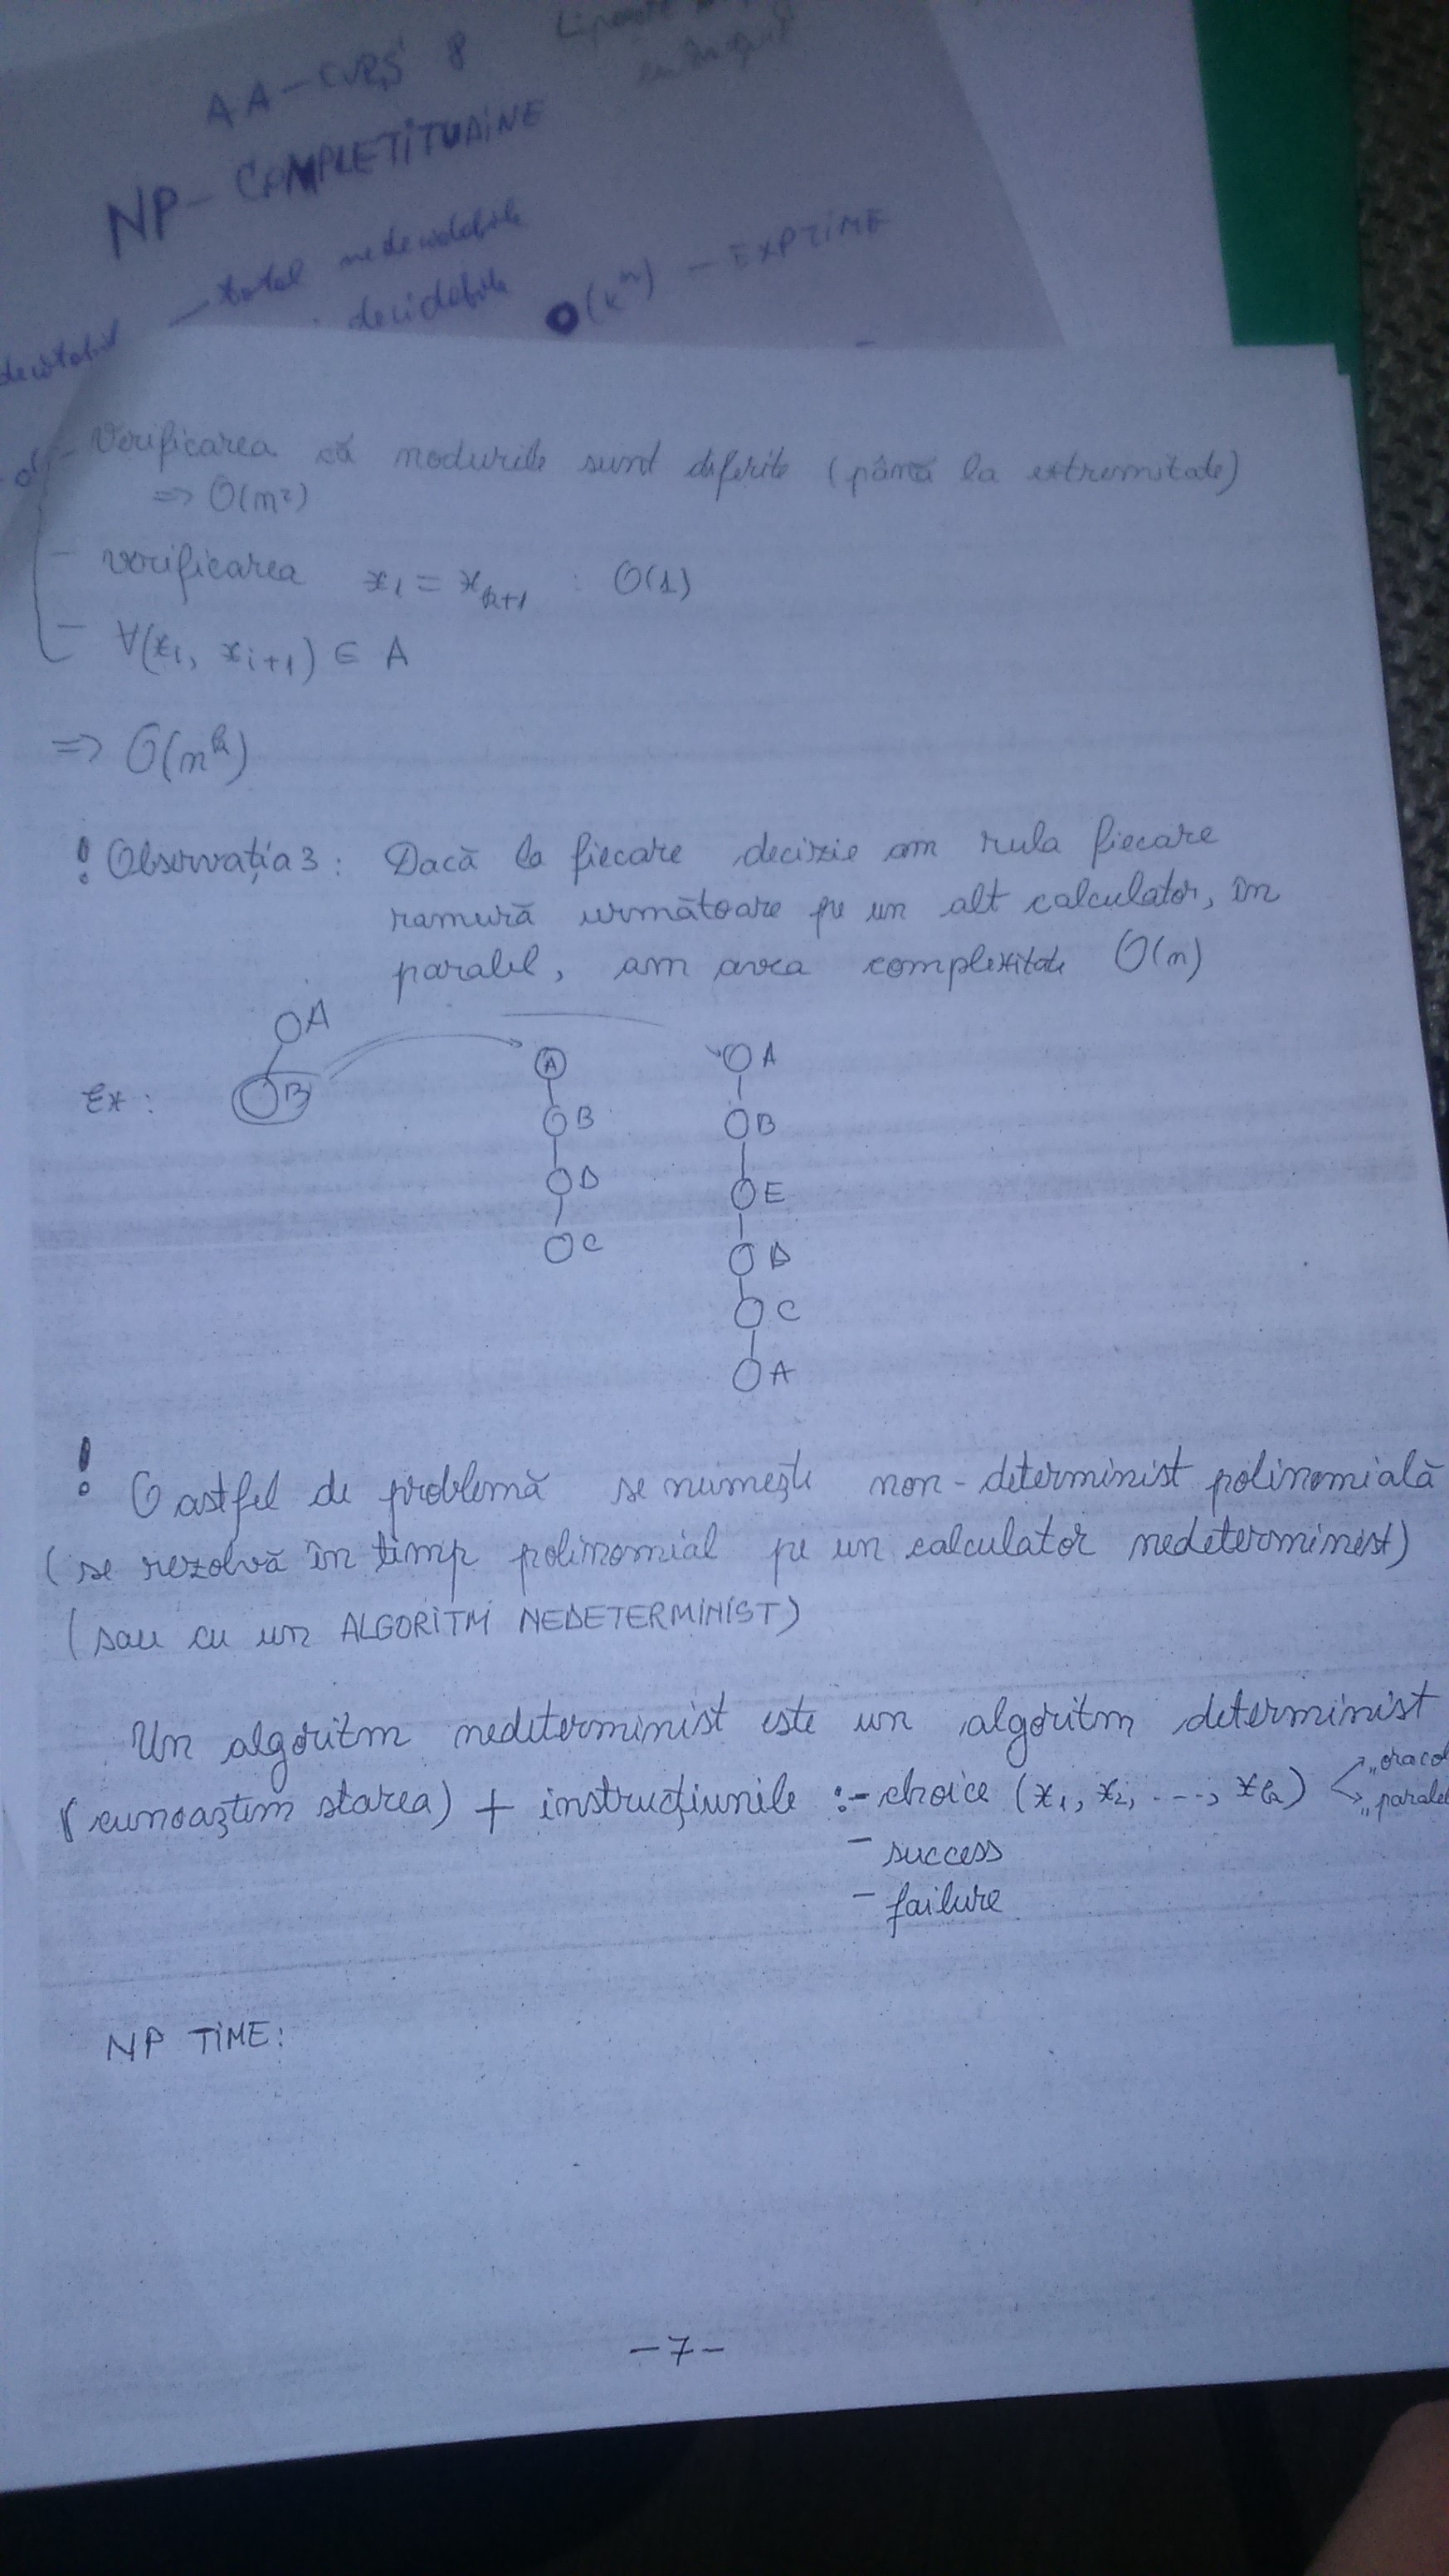 AA - CURS 8
NP - COMPLETITUDINE
total nedecidabile
decidabile
O(k^n) - EXPTIME
- Verificarea că nodurile sunt diferite (până la extremitate)
=> O(n²)
- verificarea x₁ = x_{k+1} : O(1)
- ∀(x_i, x_{i+1}) ∈ A
=> O(n^k)
! Observația 3: Dacă la fiecare decizie am rula fiecare
ramură următoare pe un alt calculator, în
paralel, am avea complexitate O(n)
Ex:
A
B
A
B
D
C
A
B
E
D
C
A
! O astfel de problemă se numește non-determinist polinomială
(se rezolvă în timp polinomial pe un calculator nedeterminist)
(sau cu un ALGORITM NEDETERMINIST)
Un algoritm nedeterminist este un algoritm determinist
(cunoaștem starea) + instrucțiunile :- choice (x₁, x₂, ..., x_k)
„oracol
„paralel
- success
- failure
NP TIME:
-7-